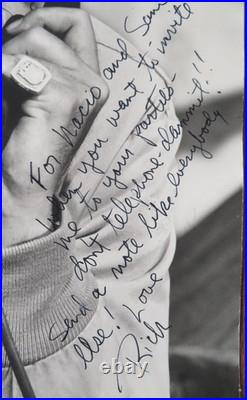 For Nacio and Sam
When you want to invite
me to your parties-
don't telephone-dammit!!
Send a note like everybody
else! Love
Rich